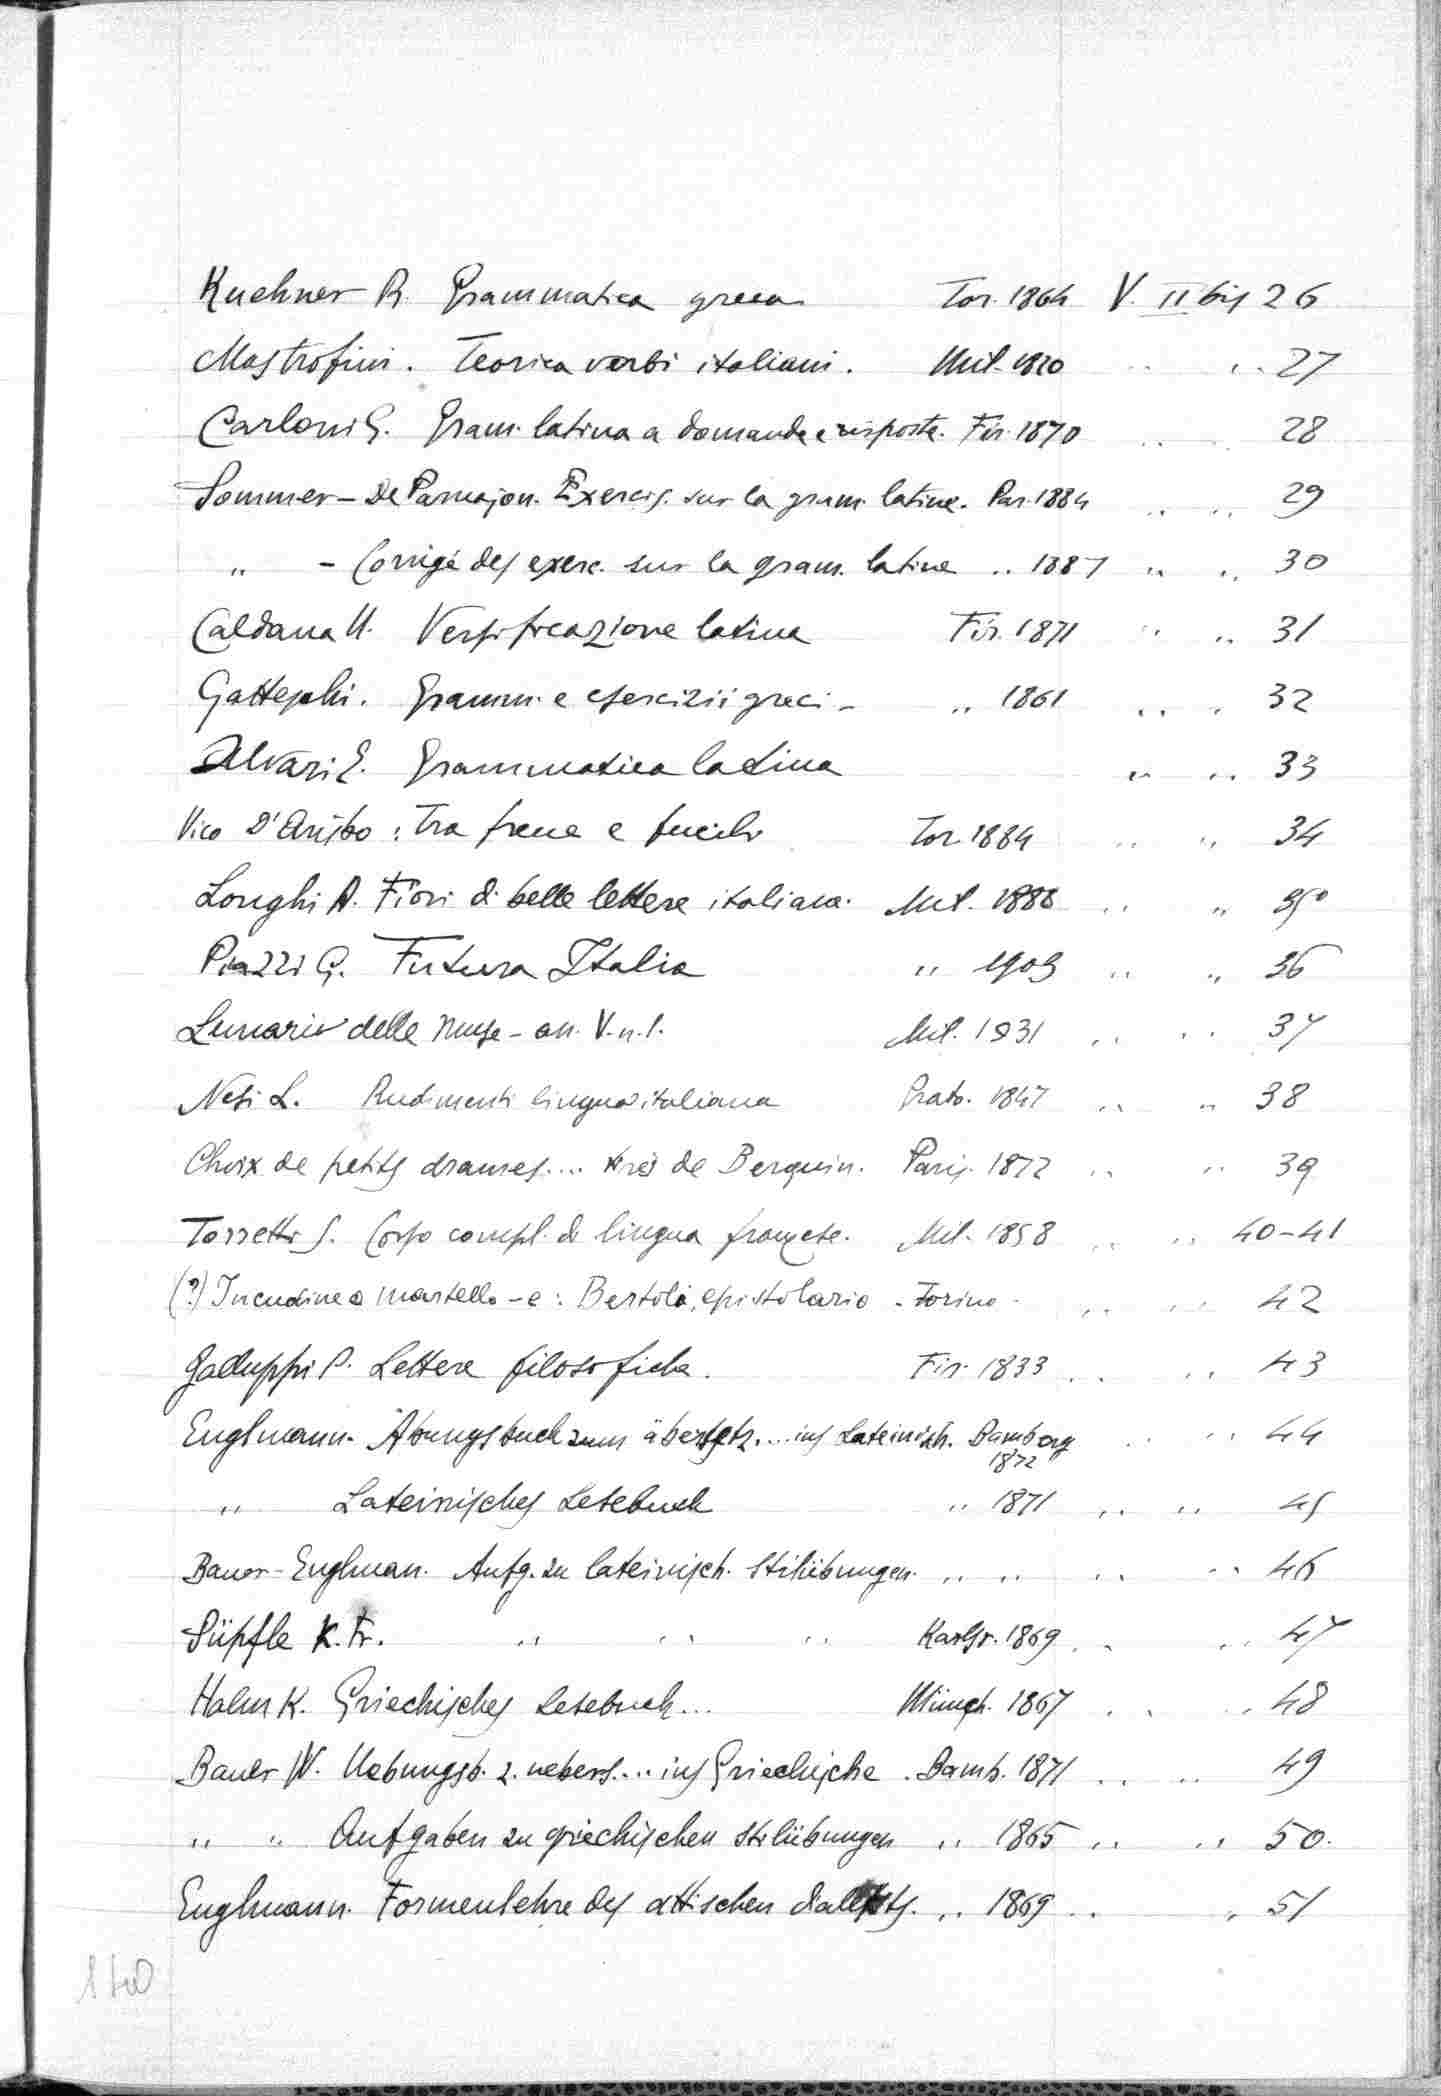 Kuehner R. Grammatica greca Tor. 1864 V. II bis 26
Mastrofini. Teorica verbi italiani. Mil. 1820 .. .. 27
Carloni G. Gram. latina a domande e risposte. Fir. 1870 .. .. 28
Sommer - De Parnajon. Exercis. sur la gram. latine. Par. 1884 .. .. 29
" - Corrigé des exerc. sur la gram. latine .. 1887 .. .. 30
Caldana U. Versificazione latina Fir. 1871 .. .. 31
Gatteschi. Gramm. e esercizii greci - .. 1861 .. .. 32
Alvari E. Grammatica latina .. .. 33
Vico D'Arisbo: Tra frene e Tor. 1884 .. .. 34
Longhi A. Fiori di belle lettere italiane. Mil. 1888 .. .. 35
Piazzi G. Futura Italia .. 1903 .. .. 36
Lunario delle Muse - an. V. n. 1. Mil. 1931 .. .. 37
Nesi L. Rudimenti lingua italiana Prato. 1847 .. .. 38
Choix de petits drames.... tirés de Berquin. Paris. 1872 .. .. 39
Torretti S. Corso compl. di lingua francese. Mil. 1858 .. .. 40-41
(?) Incudine o martello - e: Bertola, epistolario - Torino - .. .. 42
Galluppi P. Lettere filosofiche. Fir. 1833 .. .. 43
Englmann. Übungsbuch zum übersetz.... ins Lateinisch. Bamberg .. .. 44
1872
" Lateinisches Lesebuch .. 1871 .. .. 45
Bauer - Englman. Aufg. zu lateinisch. Stilübungen. .. .. .. .. 46
Süpfle K. Fr. .. .. .. Karlsr. 1869 .. .. 47
Halm K. Griechisches Lesebuch... Münch. 1867 .. .. 48
Bauer W. Uebungsb. z. uebers.... ins Griechische. Bamb. 1871 .. .. 49
" " Aufgaben zu griechischen Stilübungen .. 1865 .. .. 50.
Englmann. Formenlehre des attischen dialekts. .. 1869 .. .. 51